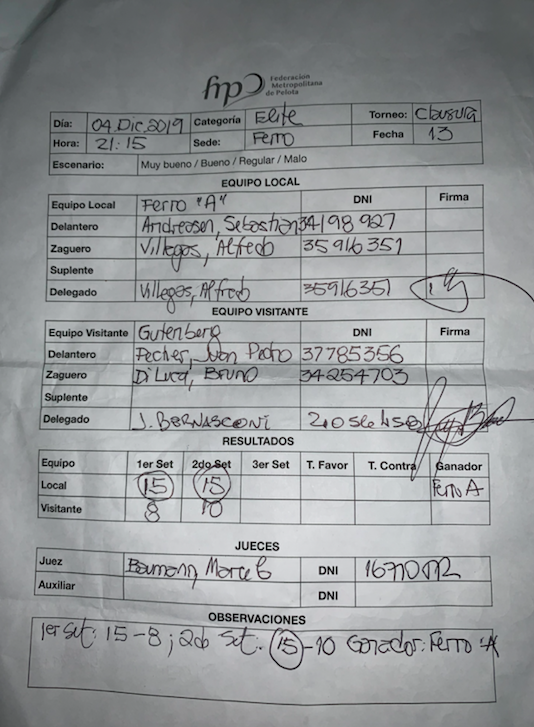 fmp Federación
Metropolitana
de Pelota
Día: 04.Dic.2019 Categoría Elite Torneo: Clausura
Hora: 21:15 Sede: Ferro Fecha 13
Escenario: Muy bueno / Bueno / Regular / Malo
EQUIPO LOCAL
Equipo Local Ferro "A" DNI Firma
Delantero Andreasen, Sebastian 34198927
Zaguero Villegas, Alfredo 35916351
Suplente
Delegado Villegas, Alfredo 35916351
EQUIPO VISITANTE
Equipo Visitante Gutenberg DNI Firma
Delantero Pecher, Juan Pedro 37785356
Zaguero Di Luca, Bruno 34254703
Suplente
Delegado J. BERNASCONI
RESULTADOS
Equipo 1er Set 2do Set 3er Set T. Favor T. Contra Ganador
Local 15 15 Ferro A
Visitante 8 10
JUECES
Juez Baumann, Marcelo DNI
Auxiliar DNI
OBSERVACIONES
1er Set: 15-8; 2do Set: 15-10 Ganador: Ferro "A"